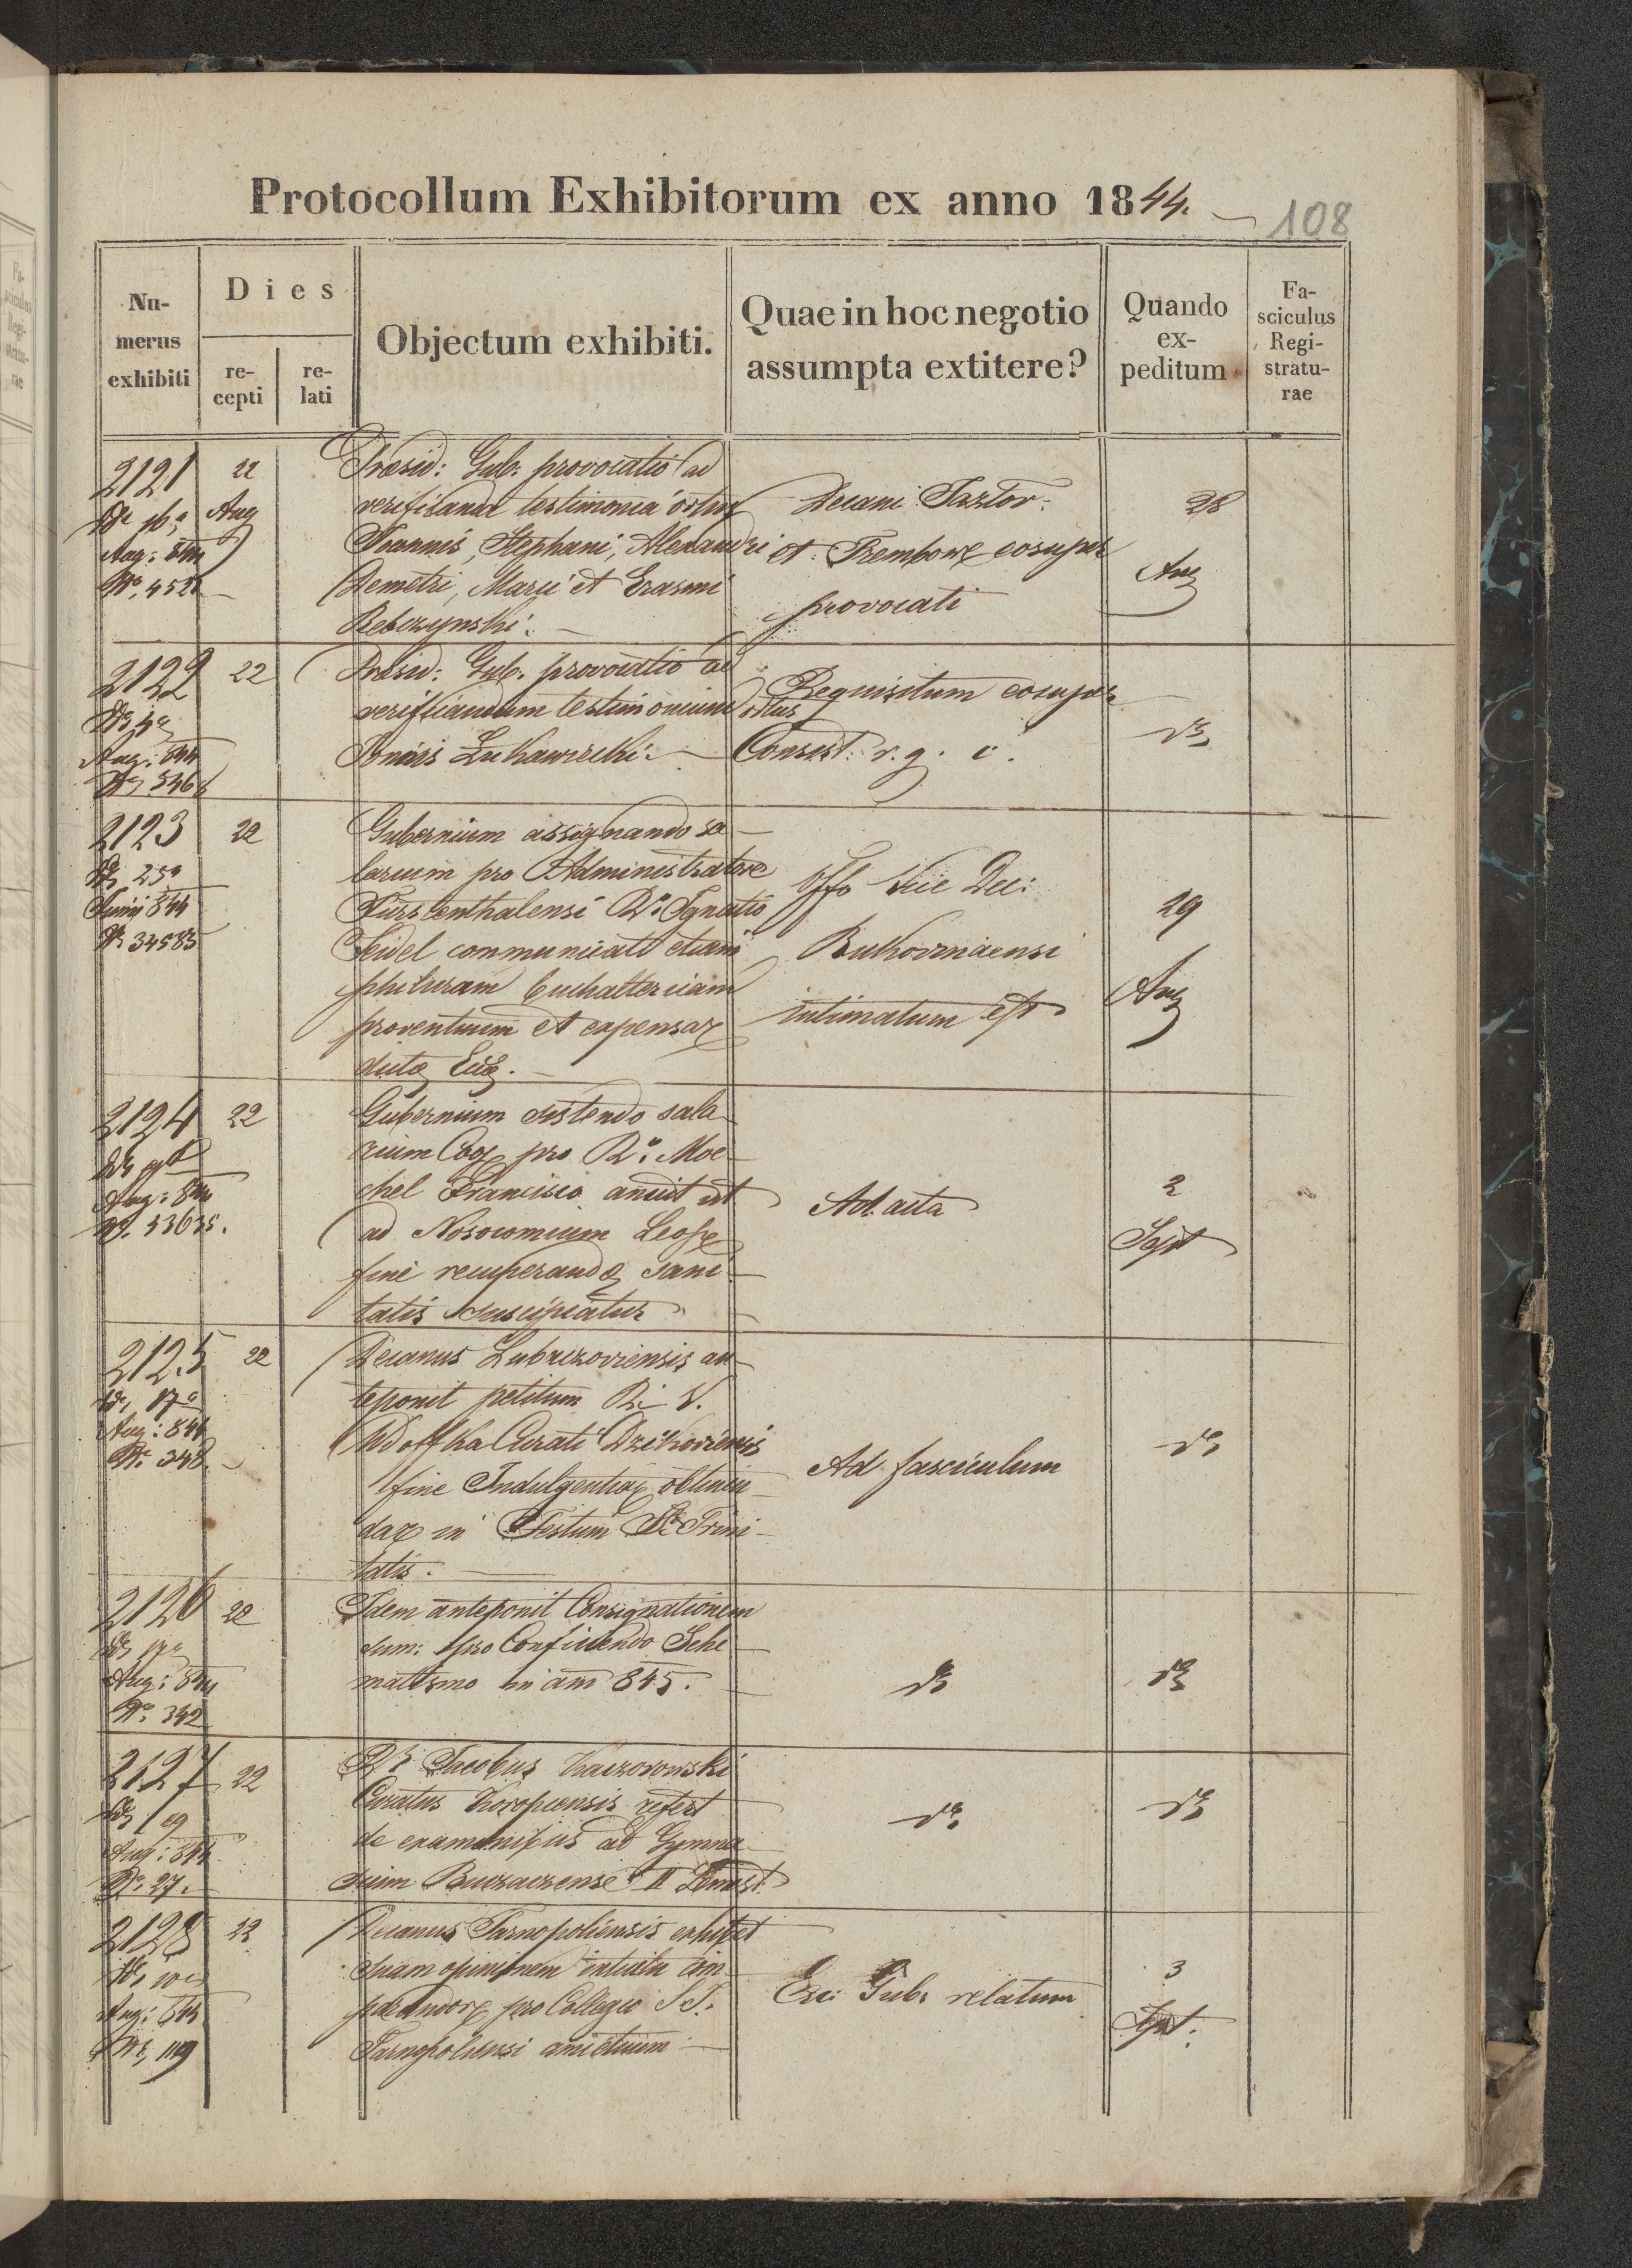 Protocollum Exhibitorum ex anno 1844.
108
Nu-
merus
exhibiti
Dies
re-
cepti
re-
lati
Objectum exhibiti.
Quae in hoc negotio
assumpta extitere?
Quando
ex-
peditum
Fa-
sciculus
Regi-
stratu-
rae
2121
Aug: 844
22
Aug
Praesid: Gub. provocatio ad
verificanda testimonia ortus
Joannis, Stephani, Alexandri
Demetri, Marci et Erasmi
Decani
et provocati
28
Aug
2122
Aug: 844
22
Praesid: Gub. provocatio ad
verificandum testimonium ortus
Requisitum
Consist. r. g. c.
2123
Dto 25a
Junii 844
No 34583
22
Gubernium assignando sa-
larium pro Administratore
Fürstenthalensi Do Ignatio
Seidel communicat etiam
buchaltericam
proventuum et expensar
Offo Vice Dec:
Bukovinaensi
intimatum est
29
Aug
2124
Aug: 844
No. 53635.
22
Gubernium sistendo sala-
rium Coop pro Do Moe-
chel Francisco annuit ut
ad Nosocomium Leop
fine recuperandae sani-
tatis suscipiatur
Ad acta
2
Sept
2125
Dto 17a
Aug: 844
No 348.
22
Decanus Lubaczoviensis an-
teponit petitum
Curati Dzikoviensis
fine Indulgentiar obtinen-
dar in Festum SS Trini-
tatis.
Ad fasciculum
2126
Aug: 844
No 342
22
Idem anteponit Consignationem
sum: pro Conficiendo Sche-
matismo in ann 845.
2127
Aug: 844
No. 27.
22
Jacobus Kaczorowski
Curatus Koropecensis refert
de examinibus ad Gymna-
sium Buczaczense II Semest.
2128
Aug: 844
No 119
22
Decanus Tarnopoliensis exhibet
suam opinionem intuitu com-
parandor pro Collegio S.J.
Tarnopoliensi
Exc: Gub. relatum
3
Sept.